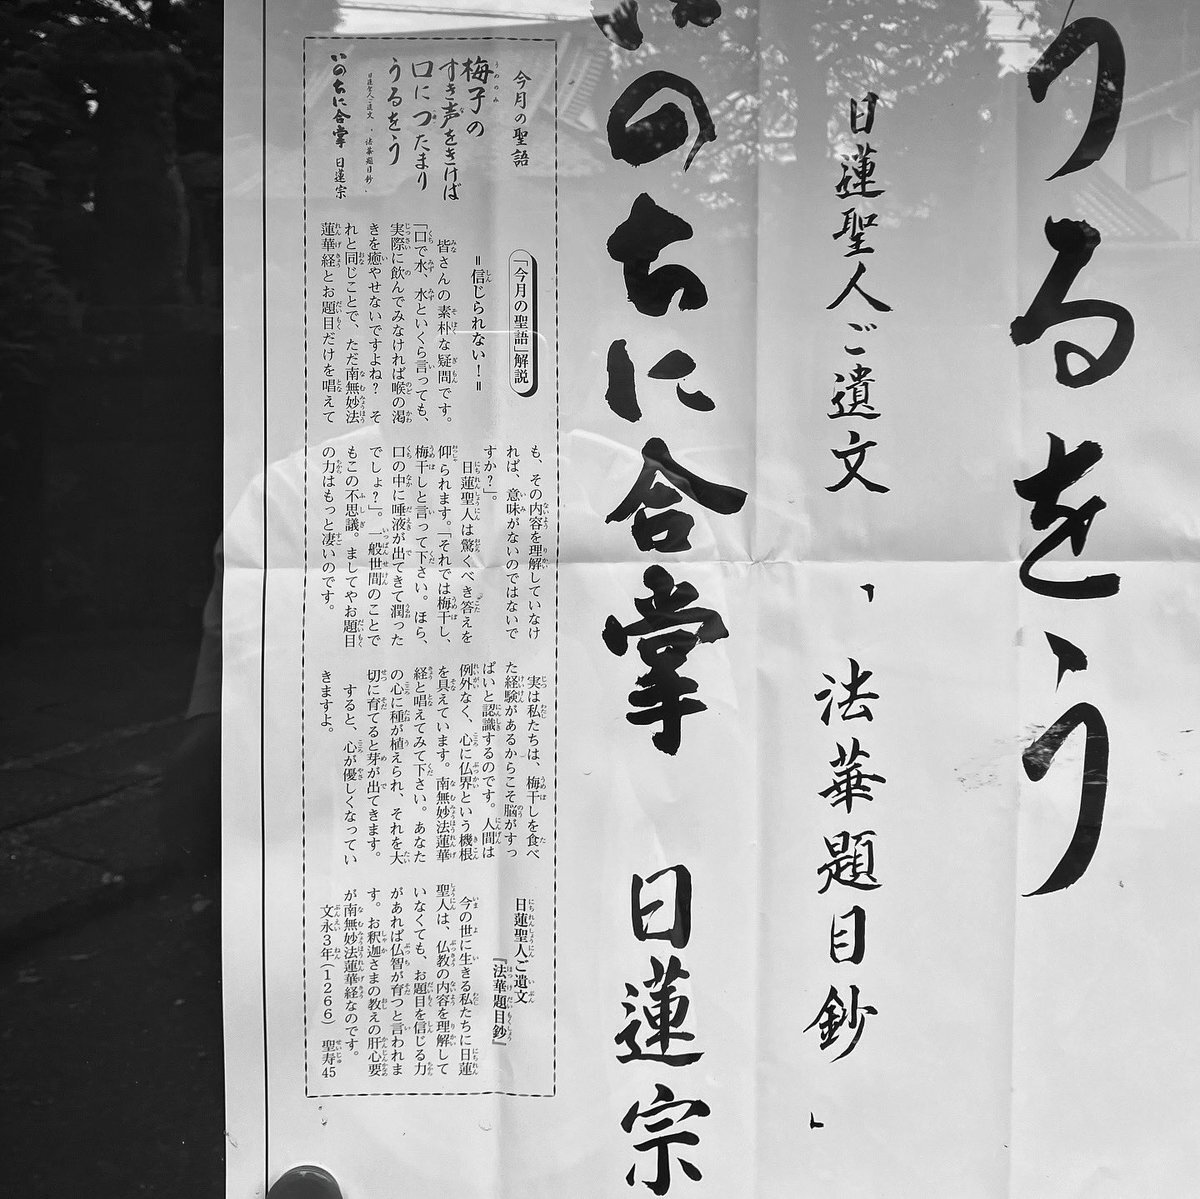 うるをう
日蓮聖人ご遺文
「法華題目鈔」
いのちに合掌 日蓮宗
今月の聖語
梅子の
すき声をきけば
口につたまり
うるをう
日蓮聖人ご遺文「法華題目鈔」
いのちに合掌 日蓮宗
「今月の聖語」解説
=信じられない!=
皆さんの素朴な疑問です。
「口で水、水といくら言っても、
実際に飲んでみなければ喉の渇
きを癒やせないですよね? そ
れと同じことで、ただ南無妙法
蓮華経とお題目だけを唱えて
も、その内容を理解していなけ
れば、意味がないのではないで
すか?」。
日蓮聖人は驚くべき答えを
仰られます。「それでは梅干し、
梅干しと言って下さい。ほら、
口の中に唾液が出てきて潤った
でしょ?」。一般世間のことで
もこの不思議。ましてやお題目
の力はもっと凄いのです。
実は私たちは、梅干しを食べ
た経験があるからこそ脳がすっ
ぱいと認識するのです。人間は
例外なく、心に仏界という機根
を具えています。南無妙法蓮華
経と唱えてみて下さい。あなた
の心に種が植えられ、それを大
切に育てると芽が出てきます。
すると、心が優しくなってい
きますよ。
日蓮聖人ご遺文
『法華題目鈔』
今の世に生きる私たちに日蓮
聖人は、仏教の内容を理解して
いなくても、お題目を信じる力
があれば仏智が育つと言われま
す。お釈迦さまの教えの肝心要
が南無妙法蓮華経なのです。
文永3年(1266) 聖寿45